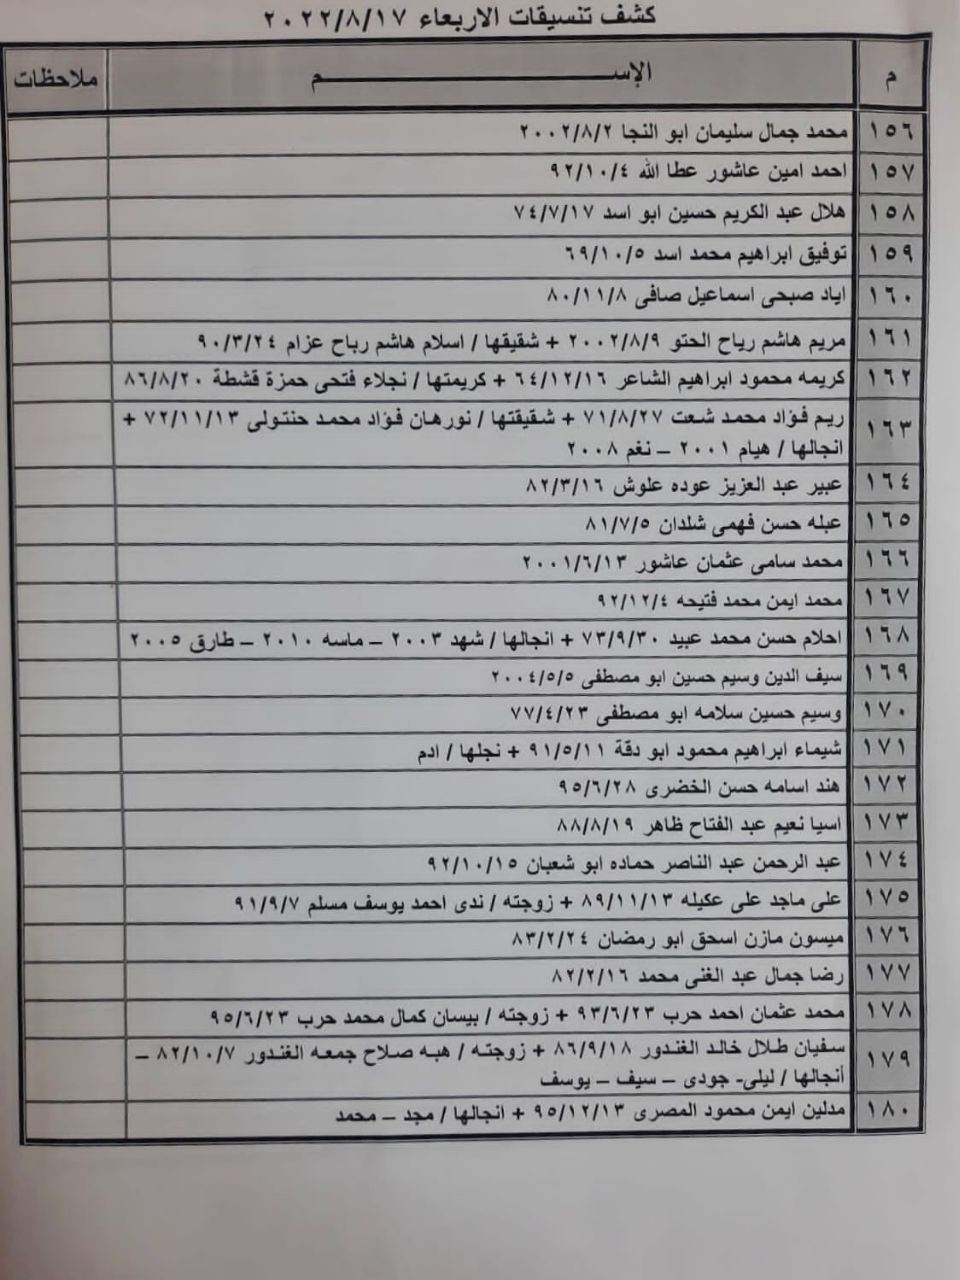 كشف تنسيقات الاربعاء ٢٠٢٢/٨/١٧
م الإســـــم ملاحظات
١٥٦ محمد جمال سليمان ابو النجا ٢٠٠٢/٨/٢
١٥٧ احمد امين عاشور عطا الله ٩٢/١٠/٤
١٥٨ هلال عبد الكريم حسين ابو اسد ٧٤/٧/١٧
١٥٩ توفيق ابراهيم محمد اسد ٦٩/١٠/٥
١٦٠ اياد صبحى اسماعيل صافى ٨٠/١١/٨
١٦١ مريم هاشم رياح الحتو ٢٠٠٢/٨/٩ + شقيقها / اسلام هاشم رباح عزام ٩٠/٣/٢٤
١٦٢ كريمه محمود ابراهيم الشاعر ٦٤/١٢/١٦ + كريمتها / نجلاء فتحى حمزة قشطة ٨٦/٨/٢٠
١٦٣ ريم فؤاد محمد شعت ٧١/٨/٢٧ + شقيقتها / نورهان فؤاد محمد حنتولى ٧٢/١١/١٣ +
انجالها / هيام ٢٠٠١ – نغم ٢٠٠٨
١٦٤ عبير عبد العزيز عوده علوش ٨٢/٣/١٦
١٦٥ عبله حسن فهمى شلدان ٨١/٧/٥
١٦٦ محمد سامى عثمان عاشور ٢٠٠١/٦/١٣
١٦٧ محمد ايمن محمد فتيحه ٩٢/١٢/٤
١٦٨ احلام حسن محمد عبيد ٧٣/٩/٣٠ + انجالها / شهد ٢٠٠٣ – ماسه ٢٠١٠ – طارق ٢٠٠٥
١٦٩ سيف الدين وسيم حسين ابو مصطفى ٢٠٠٤/٥/٥
١٧٠ وسيم حسين سلامه ابو مصطفى ٧٧/٤/٢٣
١٧١ شيماء ابراهيم محمود ابو دقة ٩١/٥/١١ + نجلها / ادم
١٧٢ هند اسامه حسن الخضرى ٩٥/٦/٢٨
١٧٣ اسيا نعيم عبد الفتاح ظاهر ٨٨/٨/١٩
١٧٤ عبد الرحمن عبد الناصر حماده ابو شعبان ٩٢/١٠/١٥
١٧٥ على ماجد على عكيله ٨٩/١١/١٣ + زوجته / ندى احمد يوسف مسلم ٩١/٩/٧
١٧٦ ميسون مازن اسحق ابو رمضان ٨٣/٢/٢٤
١٧٧ رضا جمال عبد الغنى محمد ٨٢/٢/١٦
١٧٨ محمد عثمان احمد حرب ٩٣/٦/٢٣ + زوجته / بيسان كمال محمد حرب ٩٥/٦/٢٣
١٧٩ سفيان طلال خالد الغندور ٨٦/٩/١٨ + زوجته / هبه صلاح جمعه الغندور ٨٢/١٠/٧ –
أنجالها / ليلى- جودى – سيف – يوسف
١٨٠ مدلين ايمن محمود المصرى ٩٥/١٢/١٣ + انجالها / مجد – محمد